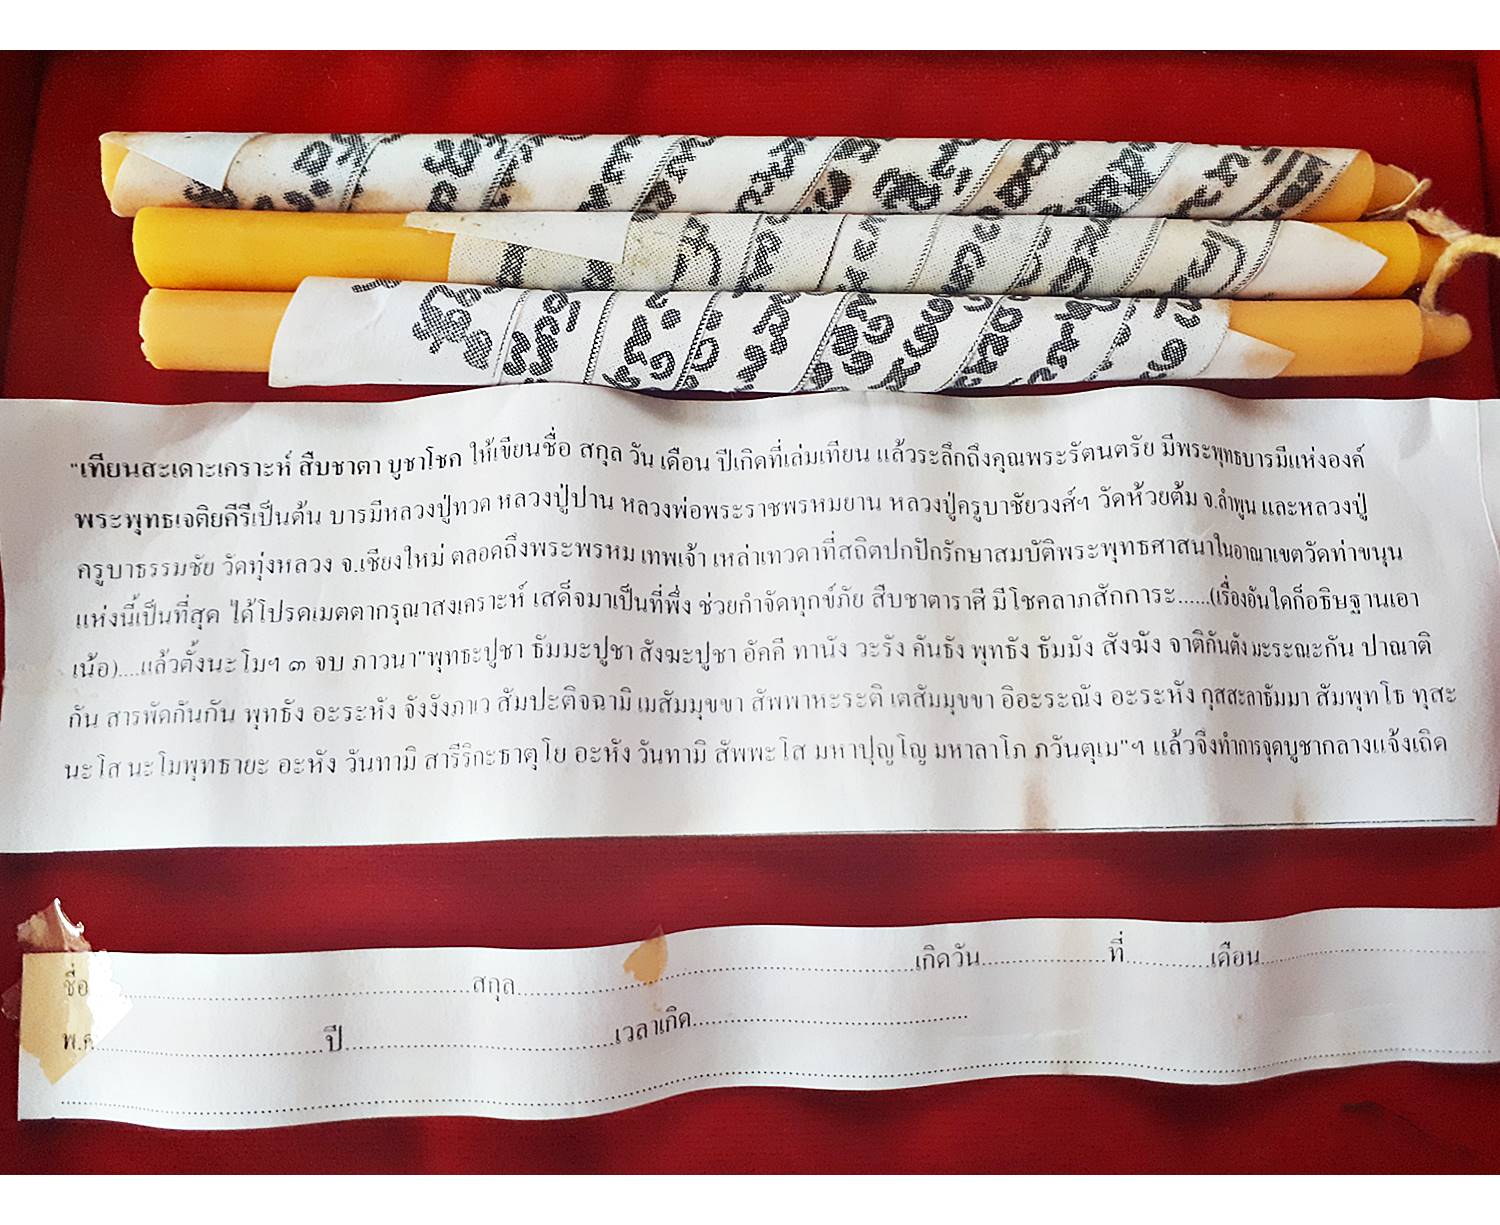 "เทียนสะเดาะเคราะห์ สืบชาตา บูชาโชค ให้เขียนชื่อ สกุล วัน เดือน ปีเกิดที่เล่มเทียน แล้วระลึกถึงคุณพระรัตนตรัย มีพระพุทธบารมีแห่งองค์
พระพุทธเจติยคีรีเป็นต้น บารมีหลวงปู่ทวด หลวงปู่ปาน หลวงพ่อพระราชพรหมยาน หลวงปู่ครูบาชัยวงศ์ฯ วัดห้วยต้ม จ.ลำพูน และหลวงปู่
ครูบาธรรมชัย วัดทุ่งหลวง จ.เชียงใหม่ ตลอดถึงพระพรหม เทพเจ้า เหล่าเทวดาที่สถิตปกปักรักษาสมบัติพระพุทธศาสนาในอาณาเขตวัดท่าขนุน
แห่งนี้เป็นที่สุด ได้โปรดเมตตากรุณาสงเคราะห์ เสด็จมาเป็นที่พึ่ง ช่วยกำจัดทุกข์ภัย สืบชาตาราศี มีโชคลาภสักการะ......(เรื่องอันใดก็อธิษฐานเอา
เน้อ)....แล้วตั้งนะโมฯ ๓ จบ ภาวนา"พุทธะปูชา ธัมมะปูชา สังฆะปูชา อัคคี ทานัง วะรัง คันธัง พุทธัง ธัมมัง สังฆัง จาติกันตัง มะระณะกัน ปาณาติ
กัน สารพัดกันกัน พุทธัง อะระหัง จังงังภาเว สัมปะติจฉามิ เมสัมมุขขา สัพพาหะระติ เตสัมมุขขา อิอะระณัง อะระหัง กุสสะลาธัมมา สัมพุทโธ ทุสะ
นะโส นะโมพุทธายะ อะหัง วันทามิ สารีริกะธาตุโย อะหัง วันทามิ สัพพะโส มหาปุญโญ มหาลาโภ ภวันตุเม"ฯ แล้วจึงทำการจุดบูชากลางแจ้งเถิด
ชื่อ..............................สกุล..............................เกิดวัน....................ที่..............เดือน..............................
พ.ศ..............................ปี..............................เวลาเกิด..............................